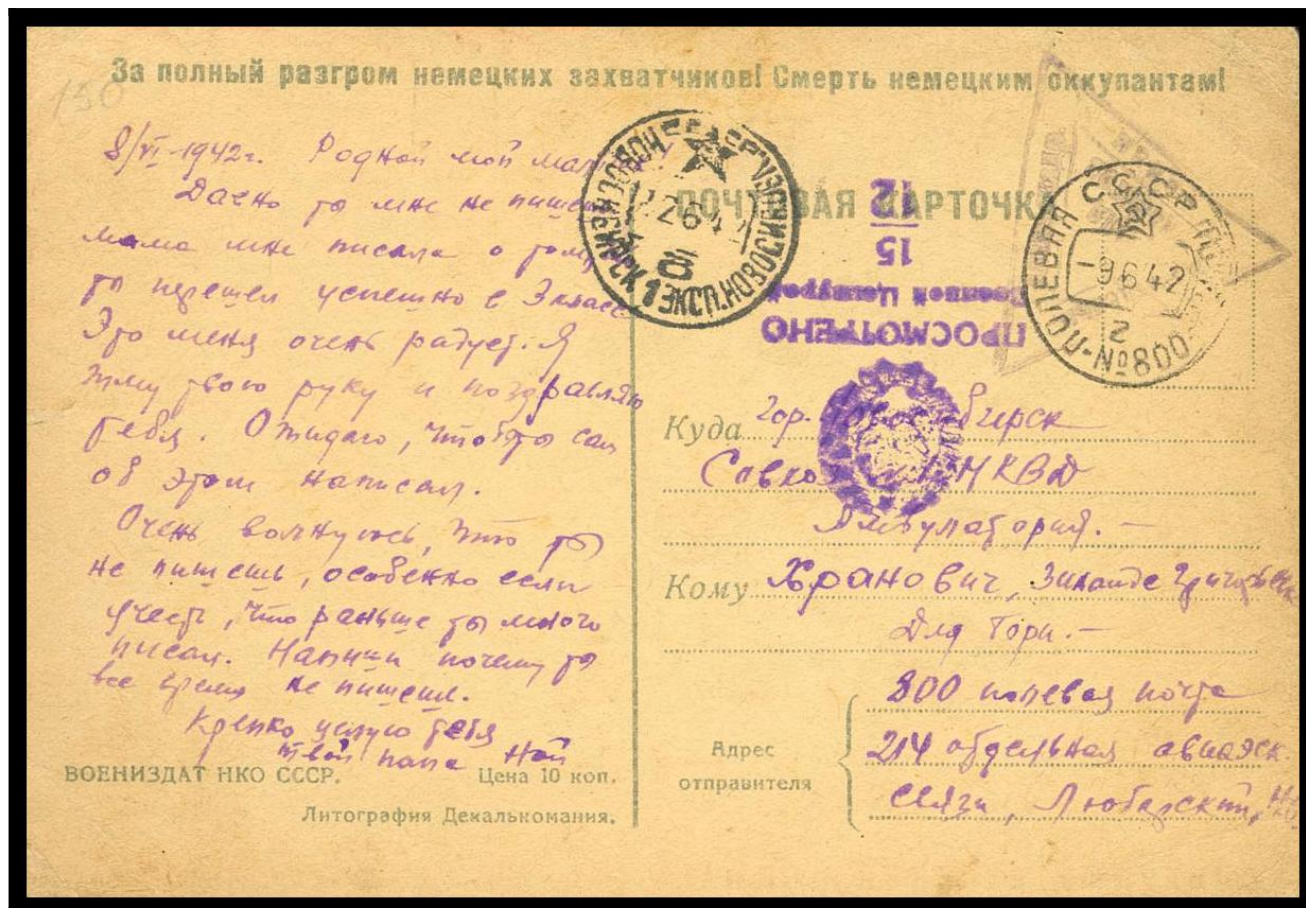 За полный разгром немецких захватчиков! Смерть немецким оккупантам!
150
8/VI-1942г. Родной мой
Давно ты мне не пишешь
мама мне писала о том,
ты перешел успешно с 3 класс
Это меня очень радует. Я
жму твою руку и поздравляю
тебя. Ожидаю, чтобы ты сам
об этом написал.
Очень волнуюсь, что ты
не пишешь, особенно если
учесть, что раньше ты много
писал. Напиши почему ты
все время не пишешь.
Крепко целую тебя
твой папа Ной
ВОЕНИЗДАТ НКО СССР. Цена 10 коп.
Литография Декалькомания.
ПОЧТОВАЯ КАРТОЧКА
НОВОСИБИРСК 1 ЭКСП. НОВОСИБИРСК
12 6 42
СССР
-9 6 42
2
ПОЛЕВАЯ №800
12
15
Военной Цензурой
ПРОСМОТРЕНО
Куда гор. Новосибирск
НКВД
Амбулатория.-
Кому Хранович, Зинаиде
Для Гори.-
Адрес отправителя
800 полевая почта
214 отдельная авиаэск.
связи, Любарский,